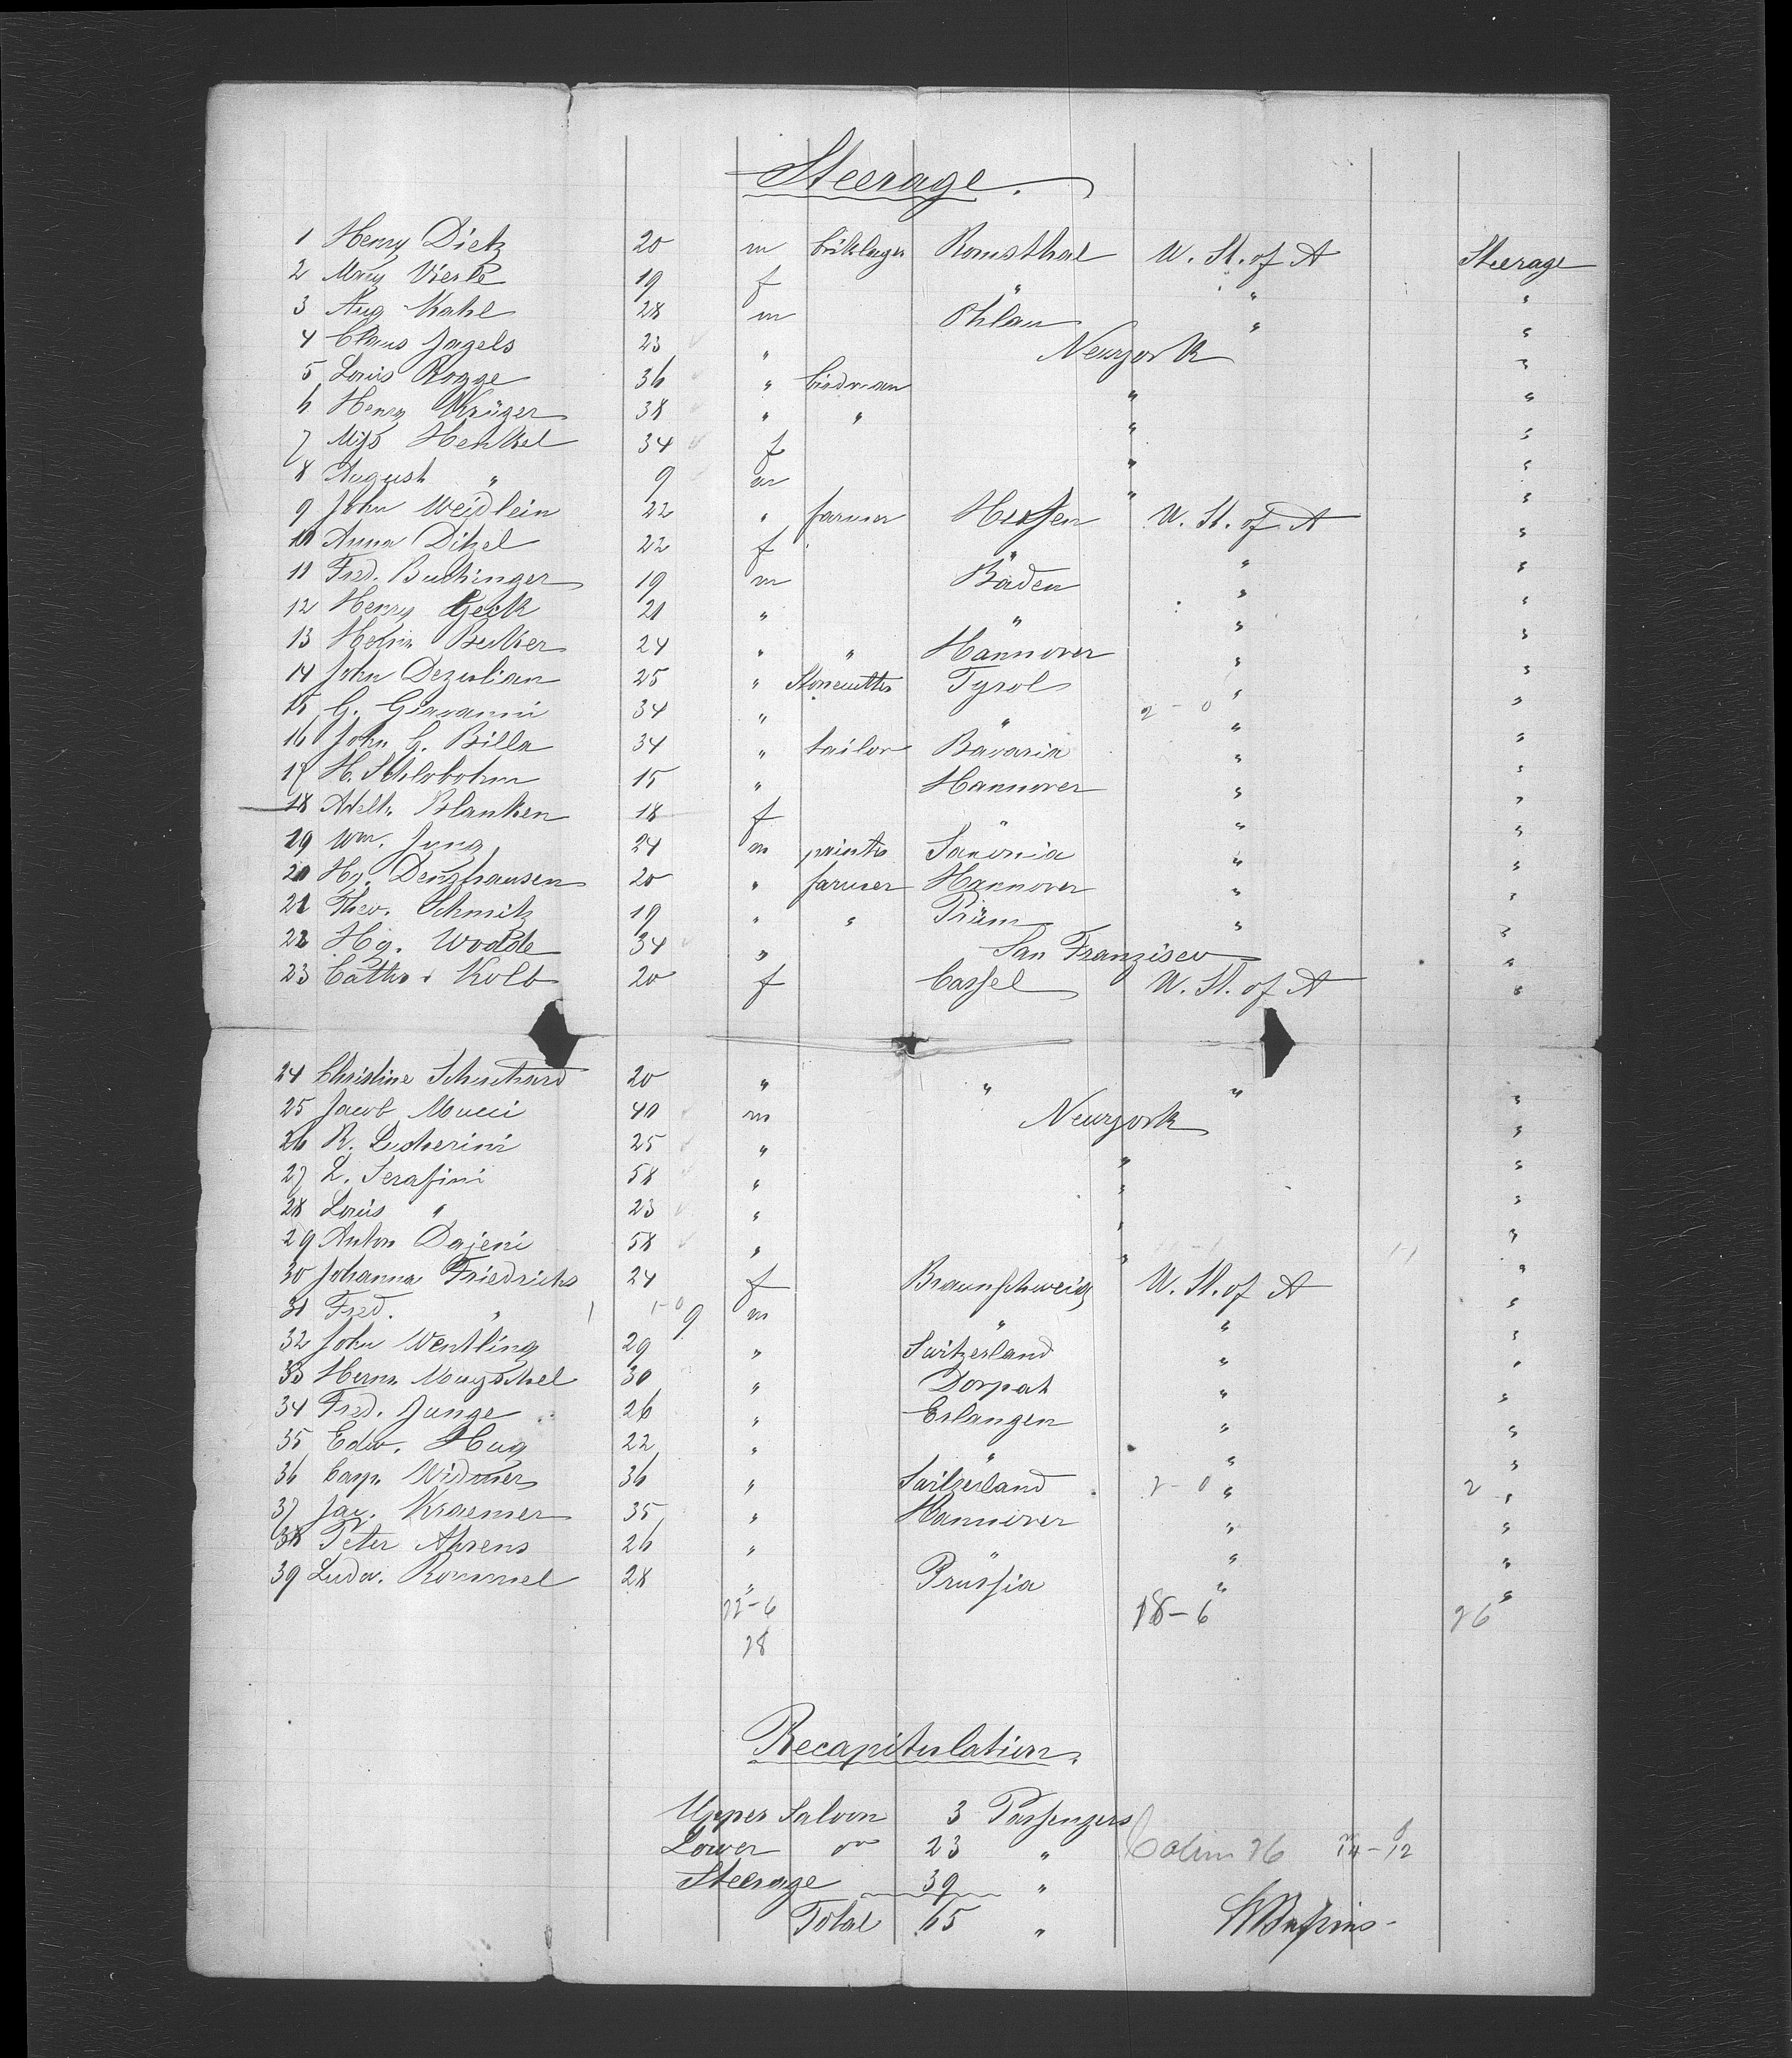 Steerage.
1 Henry Dietz 20 m briklayer Romsthal U. St. of A Steerage
2 Mary Vierle 19 f " " "
3 Aug Kahl 28 m Ohlau " "
4 Claus Jagels 23 " Newyork "
5 Louis Rogge 36 " birdman " "
6 Henry Krüger 38 " " " "
7 Miss Henkel 34 f " "
8 August " 9 m " "
9 John Weidlein 22 " farmer Hessen U. St. of A "
10 Anna Ditzel 22 f " " "
11 Fred. Buchinger 19 m Baden " "
12 Henry Geck 21 " " " "
13 Herm Becker 24 " " Hannover " "
14 John Dezulian 25 " Stonecutter Tyrol " "
15 G. Giavanni 34 " " 2-0 " "
16 John G. Billa 34 " tailor Bavaria " "
17 H. Schlobohm 15 " Hannover " "
18 Adelh. Blanken 18 f " " "
19 Wm. Jung 24 m painter Saxonia " "
20 Hy. Denzhausen 20 " farmer Hannover " "
21 Theo. Schmitz 19 " " Prüm " "
22 Hy. Wodde 34 " San Franzisco "
23 Cathr. Kolb 20 f Cassel U. St. of A "
24 Christine Schuchard 20 " " " "
25 Jacob Mucci 40 m Newyork "
26 R. Lucherini 25 " " "
27 L. Serafini 58 " " "
28 Louis " 23 " " "
29 Anton Dajeni 58 " " "
30 Johanna Friedrichs 24 f Braunschweig U. St. of A "
31 Fred. " 1 1-0 9 m " " "
32 John Wentling 29 " Switzerland " "
33 Herm. 30 " Dorpat " "
34 Fred. Junge 26 " Erlangen " "
35 Edw. Hug 22 " " " "
36 Casp. Widmer 36 " Switzerland 2-0 " 2 "
37 Jac. Kraemer 35 " Hannover " "
38 Peter Ahrens 26 " " " "
39 Ludw. Rommel 28 " Prussia " "
22-6 18-6 26
28
Recapitulation.
Upper Saloon 3 Passengers
Lower do 23 "
Steerage 39 "
Total 65 "